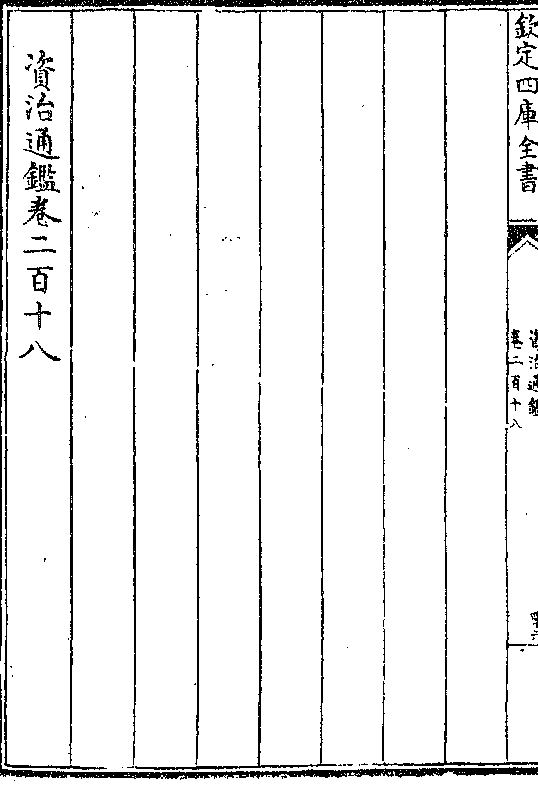 欽定四庫全書
資治通鑑
卷二百十八
資治通鑑卷二百十八